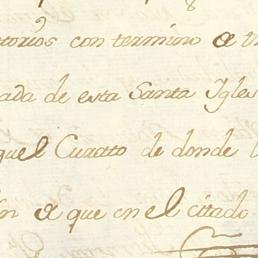 8
torios con termino a
ada de esta Santa Igles
quel Curatto de donde
a que en el citado